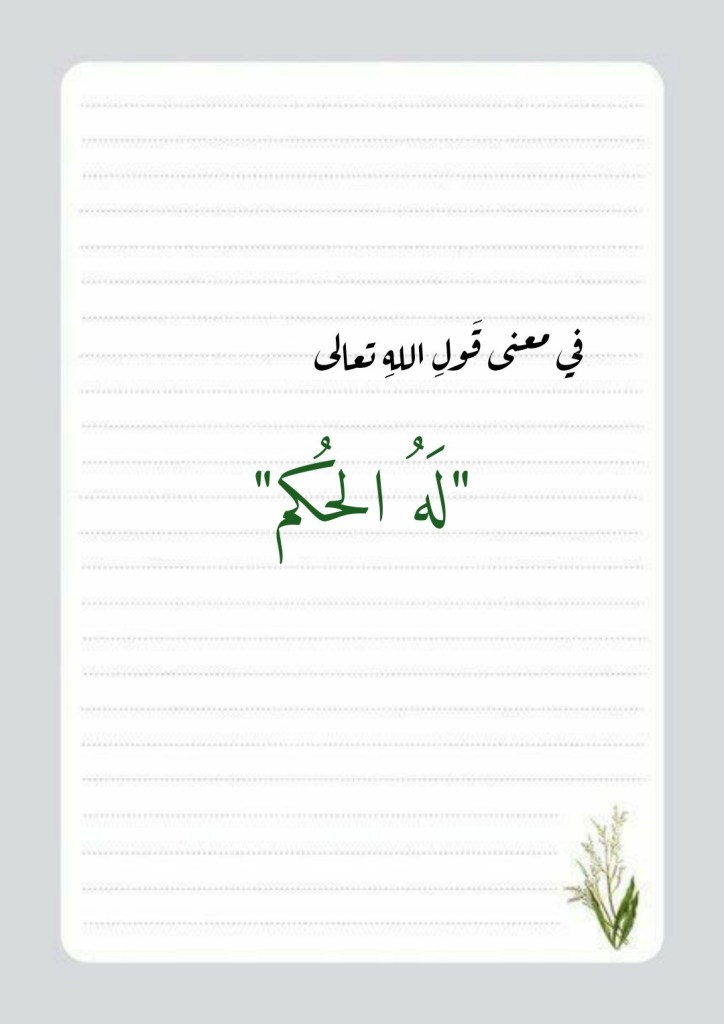 في معنى قَولِ اللهِ تعالى
"لَهُ الحُكم"